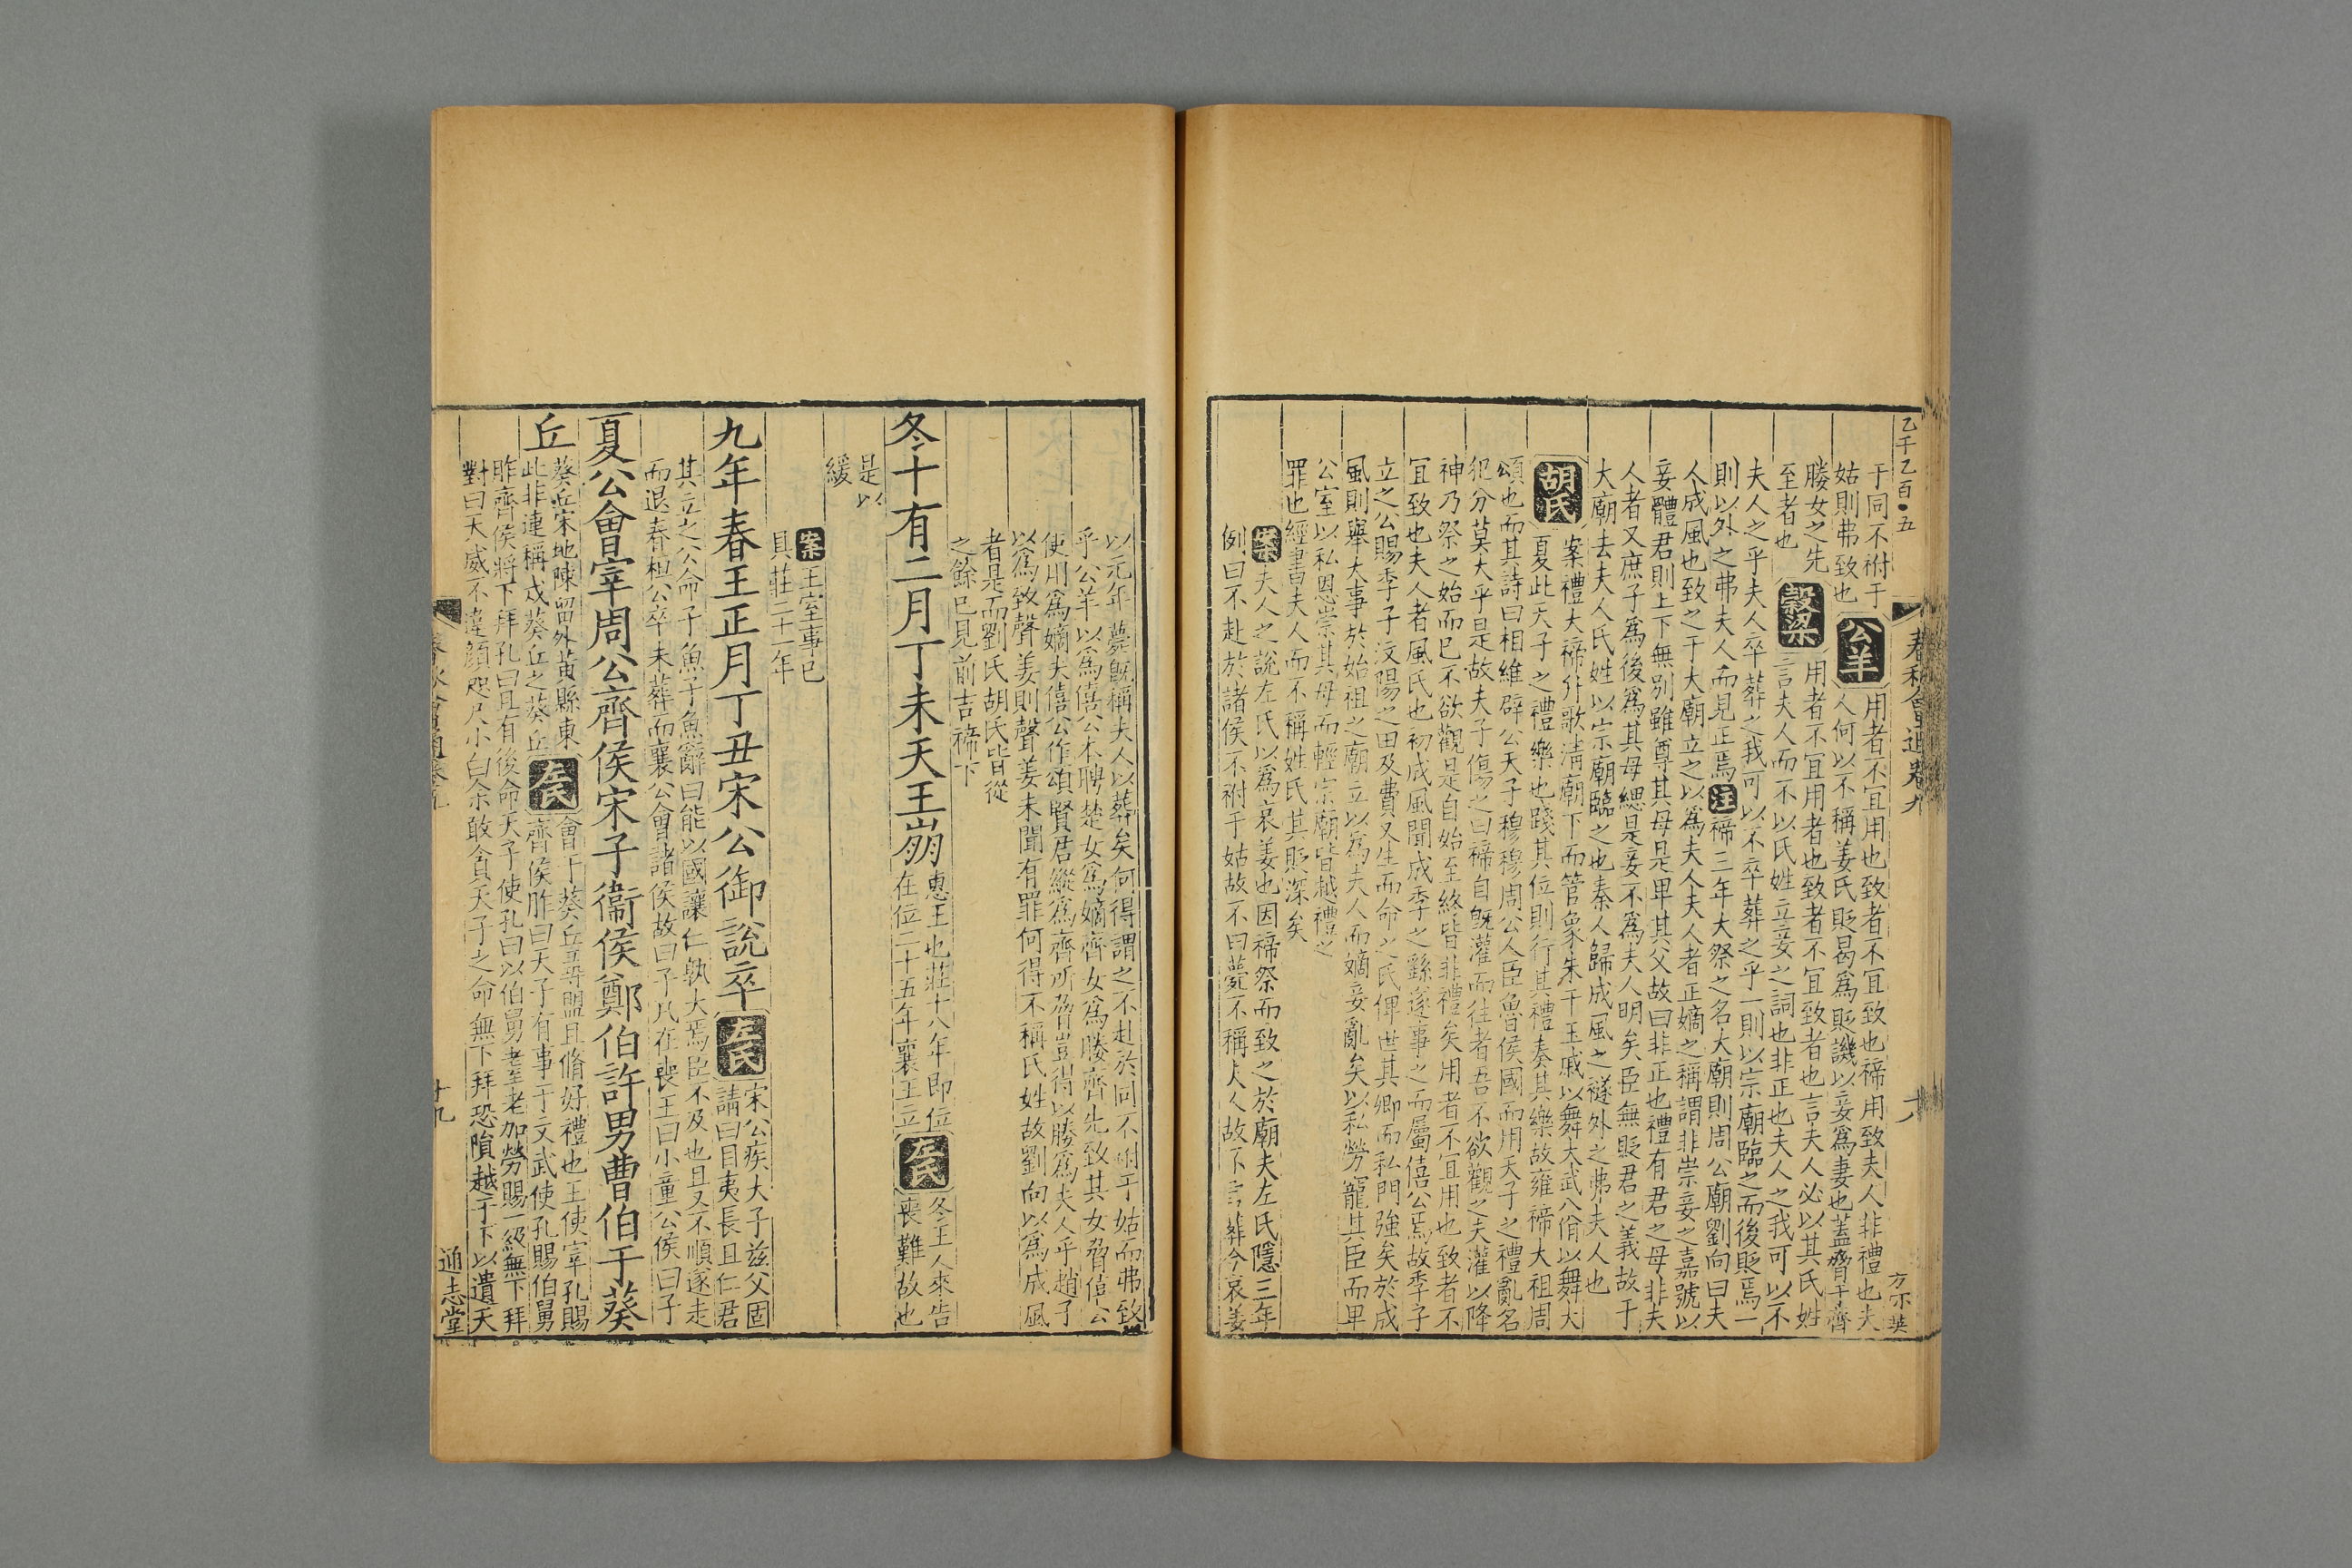 乙千乙百·五
春秋會通卷九
方不英
于同不祔于
姑則弗致也
公羊
用者不宜用也致者不宜致也禘用致夫人非禮也夫
人何以不稱姜氏貶曷爲貶譏以妾爲妻也蓋脅于齊
媵女之先
至者也
穀梁
用者不宜用者也致者不宜致者也言夫人必以其氏姓
言夫人而不以氏姓立妾之詞也非正也夫人之我可以不
夫人之乎夫人卒葬之我可以不卒葬之乎一則以宗廟臨之而後貶焉一
則以外之弗夫人而見正焉注禘三年大祭之名大廟則周公廟劉向曰夫
人成風也致之于大廟立之以爲夫人夫人者正嫡之稱謂非崇妾之嘉號以
妾體君則上下無別雖尊其母是卑其父故曰非正也禮有君之母非夫
人者又庶子爲後爲其母緦是妾不爲夫人明矣臣無貶君之義故于
大廟去夫人氏姓以宗廟臨之也秦人歸成風之襚外之弗夫人也
胡氏
案禮大禘升歌淸廟下而管象朱干玉戚以舞大武八佾以舞大
夏此天子之禮樂也踐其位則行其禮奏其樂故雍禘大祖周
頌也而其詩曰相維辟公天子穆穆周公人臣魯侯國而用天子之禮亂名
犯分莫大乎是故夫子傷之曰禘自旣灌而往者吾不欲觀之夫灌以降
神乃祭之始而已不欲觀是自始至終皆非禮矣用者不宜用也致者不
宜致也夫人者風氏也初成風聞成季之繇遂事之而屬僖公焉故季子
立之公賜季子汶陽之田及費又生而命之氏俾世其卿而私門強矣於成
風則舉大事於始祖之廟立以爲夫人而嫡妾亂矣以私勞寵其臣而卑
公室以私恩崇其母而輕宗廟皆越禮之
罪也經書夫人而不稱姓氏其貶深矣
案夫人之說左氏以爲哀姜也因禘祭而致之於廟夫左氏隱三年
例曰不赴於諸侯不祔于姑故不曰薨不稱夫人故不言葬今哀姜
以元年薨旣稱夫人以葬矣何得謂之不赴於同不祔于姑而弗致
乎公羊以爲僖公本聘楚女爲嫡齊女爲媵齊先致其女脅僖公
使用爲嫡夫僖公作頌賢君縱爲齊所脅豈得以媵爲夫人乎趙子
以爲致聲姜則聲姜未聞有罪何得不稱氏姓故劉向以爲成風
者是而劉氏胡氏皆從
之餘已見前吉禘下
冬十有二月丁未天王崩
惠王也莊十八年即位
在位二十五年襄王立
左氏
冬王人來告
喪難故也
是以
緩
案王室事已
具莊二十一年
九年春王正月丁丑宋公御說卒
左氏
宋公疾大子兹父固
請曰目夷長且仁君
其立之公命子魚子魚辭曰能以國讓仁孰大焉臣不及也且又不順遂走
而退春桓公卒未葬而襄公會諸侯故曰子凡在喪王曰小童公侯曰子
夏公會宰周公齊侯宋子衞侯鄭伯許男曹伯于葵
丘
葵丘宋地陳留外黃縣東
此非連稱戍葵丘之葵丘
左氏
會于葵丘尋盟且脩好禮也王使宰孔賜
齊侯胙曰天子有事于文武使孔賜伯舅
胙齊侯將下拜孔曰且有後命天子使孔曰以伯舅耋老加勞賜一級無下拜
對曰天威不違顔咫尺小白余敢貪天子之命無下拜恐隕越于下以遺天
春秋會通卷九
十九
通志堂